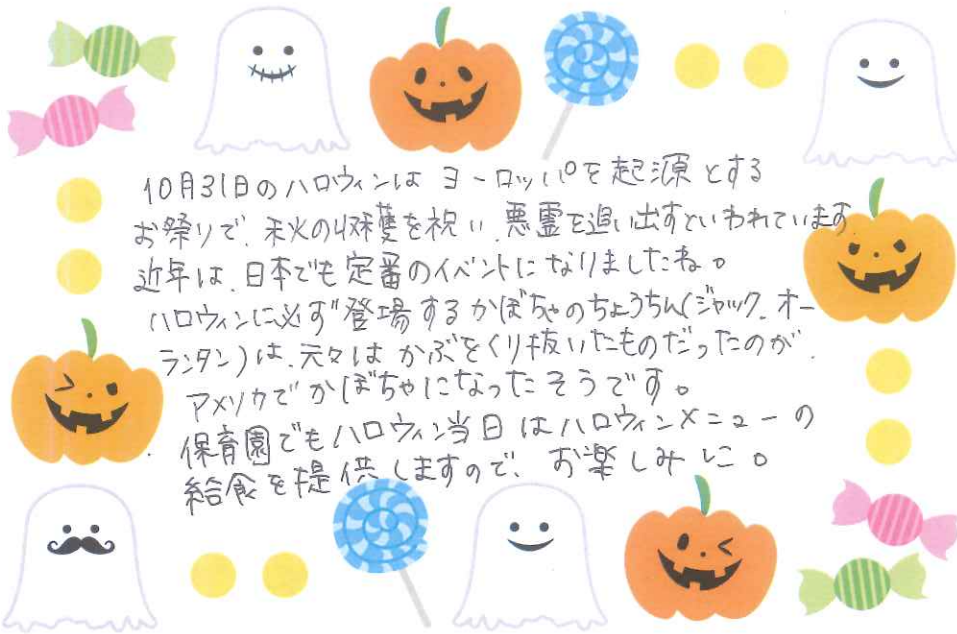 10月31日のハロウィンは ヨーロッパを起源とする
お祭りで、秋の収穫を祝い、悪霊を追い出すといわれています。
近年は、日本でも定番のイベントになりましたね。
ハロウィンに必ず登場するかぼちゃのちょうちん(ジャック、オー
ランタン)は、元々はかぶをくり抜いたものだったのが、
アメリカでかぼちゃになったそうです。
保育園でもハロウィン当日はハロウィンメニューの
給食を提供しますので、お楽しみに。